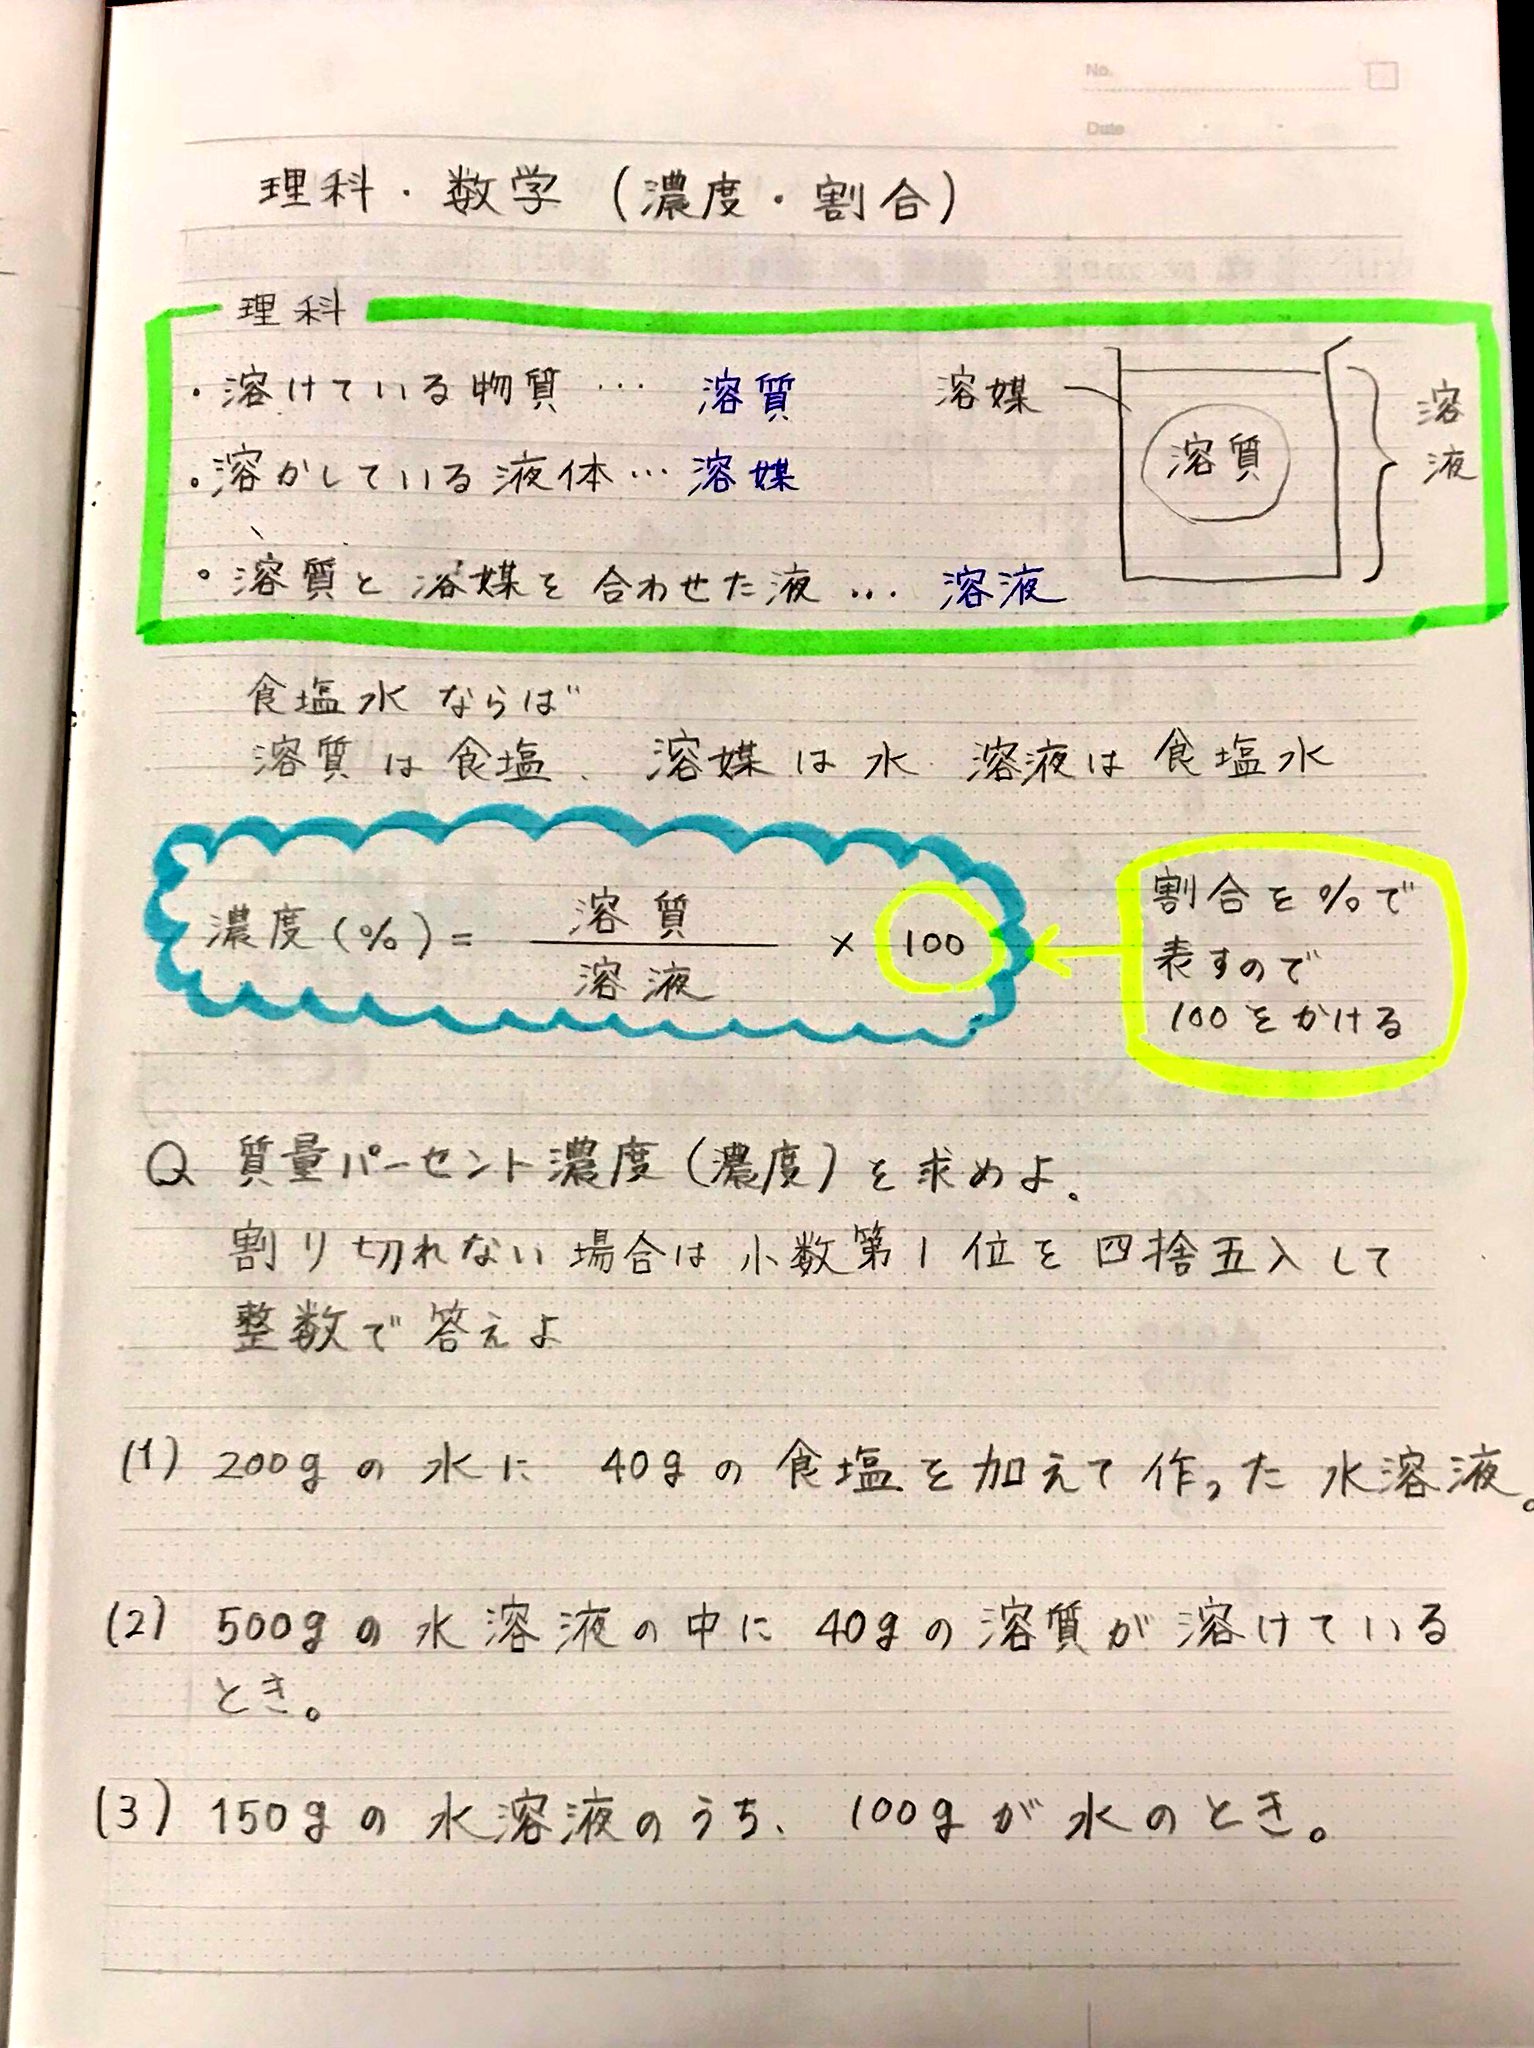 No.
Date
理科・数学（濃度・割合）
理科
・溶けている物質 … 溶質
・溶かしている液体… 溶媒
・溶質と溶媒を合わせた液 … 溶液
溶媒
溶質
溶液
食塩水ならば
溶質は食塩、溶媒は水 溶液は食塩水
濃度(%) = 溶質
溶液
× 100
割合を%で
表すので
100をかける
Q 質量パーセント濃度(濃度)を求めよ。
割り切れない場合は小数第1位を四捨五入して
整数で答えよ
(1) 200gの水に 40gの食塩を加えて作った水溶液。
(2) 500gの水溶液の中に 40gの溶質が溶けている
とき。
(3) 150gの水溶液のうち、100gが水のとき。